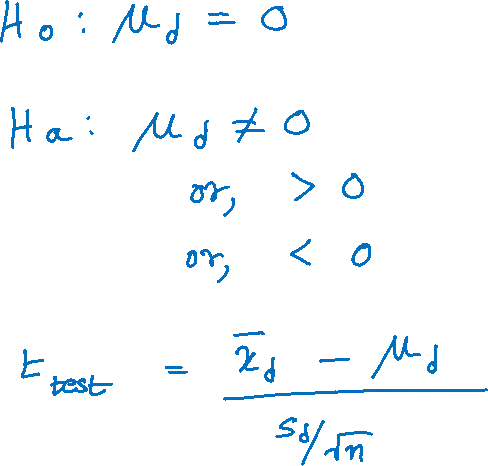 H₀ : μ_d = 0
Hₐ : μ_d ≠ 0
or, > 0
or, < 0
t_test = (x̄_d − μ_d) / (s_d/√n)